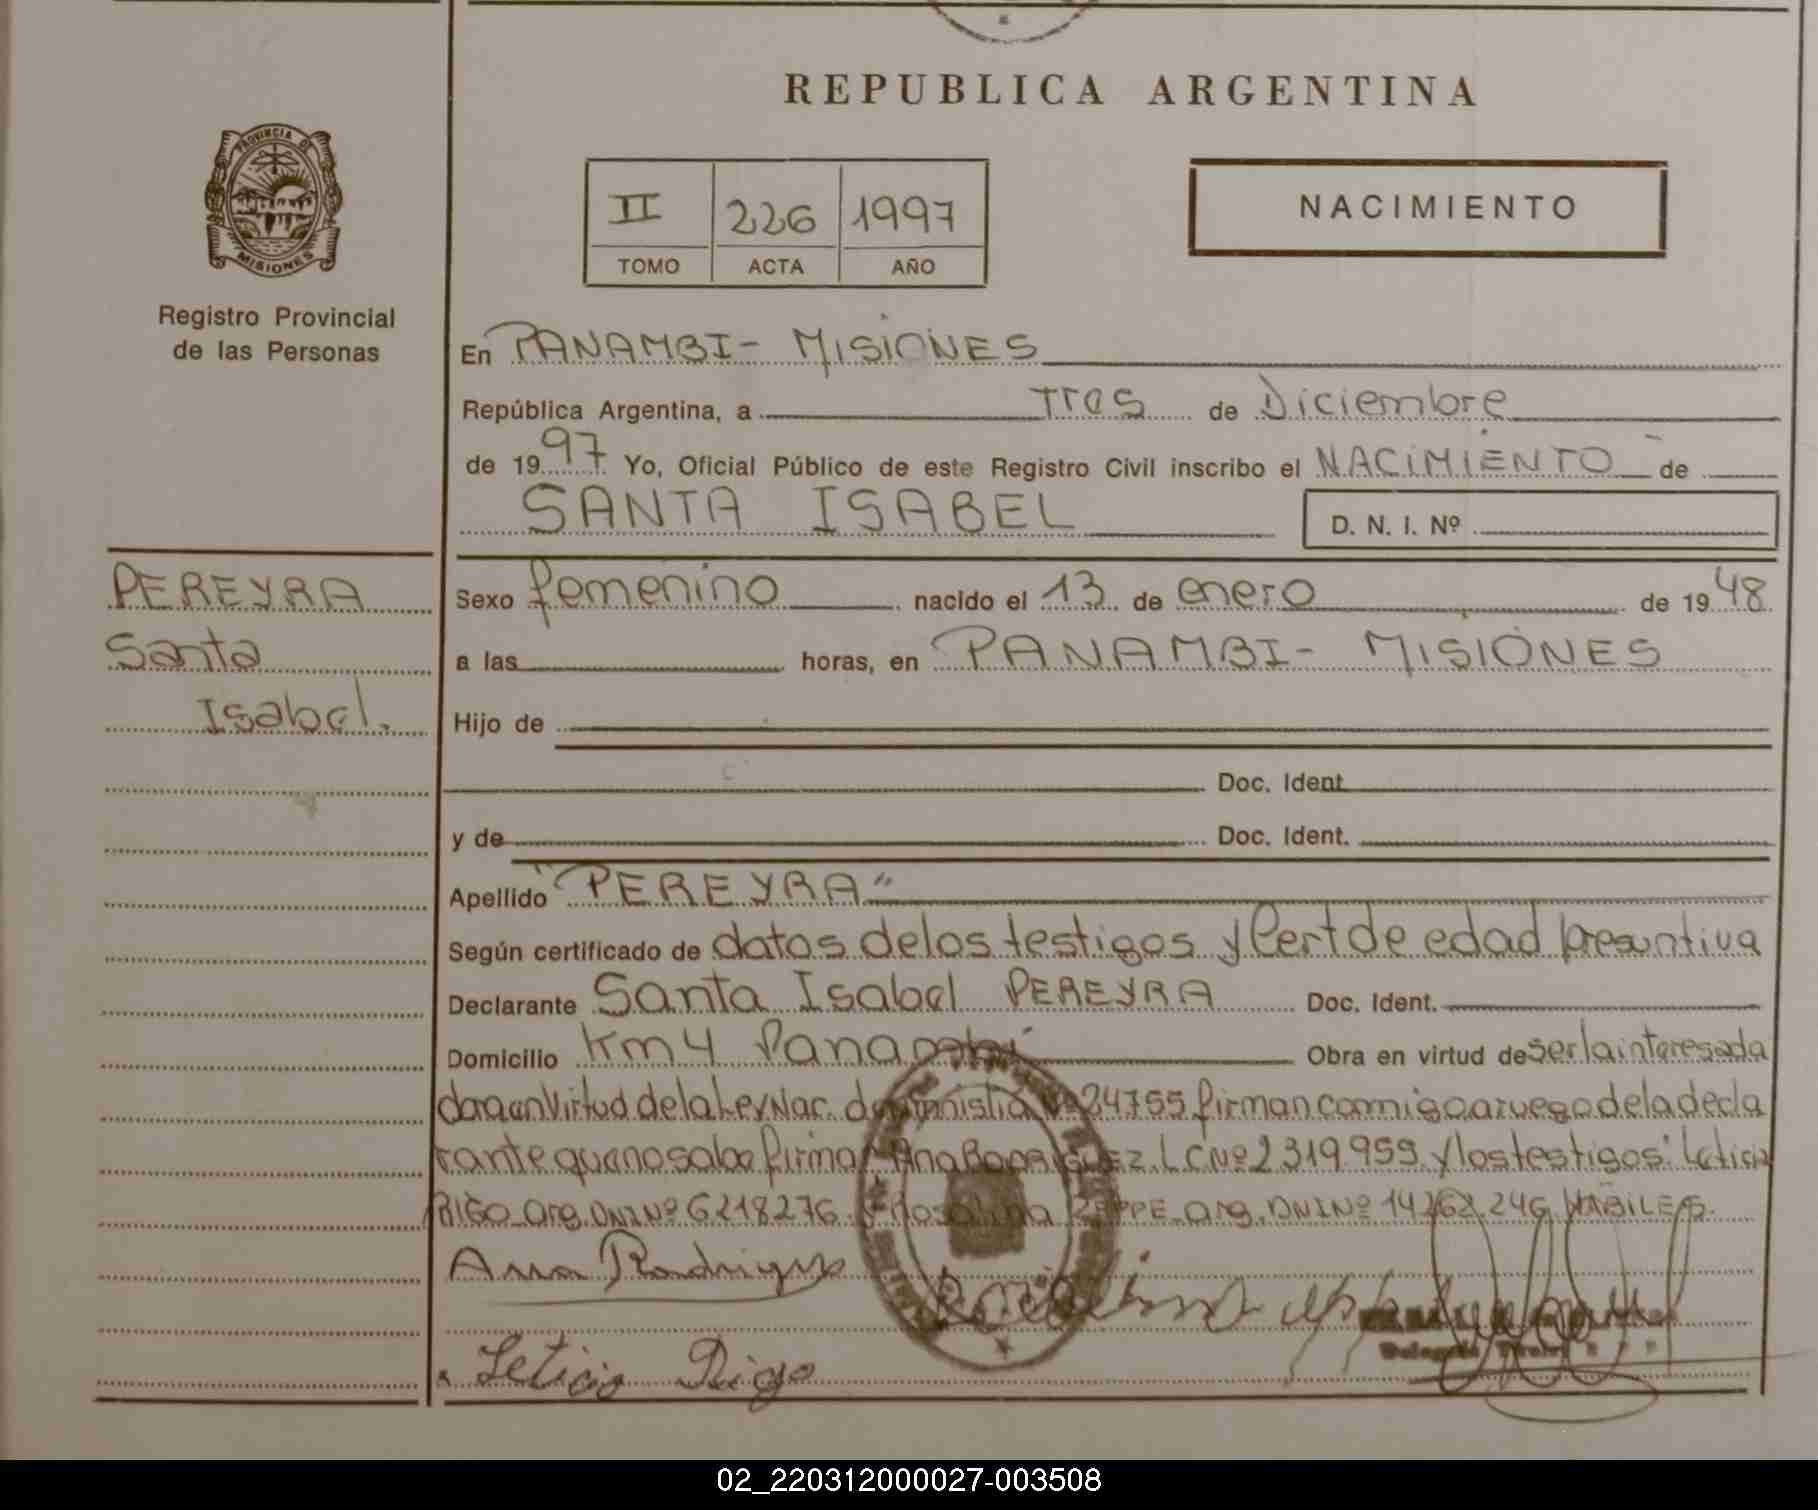 REPUBLICA ARGENTINA
PROVINCIA DE
MISIONES
Registro Provincial
de las Personas
II 226 1997
TOMO ACTA AÑO
NACIMIENTO
En PANAMBI - MISIONES
República Argentina, a tres de Diciembre
de 1997. Yo, Oficial Público de este Registro Civil inscribo el NACIMIENTO de
SANTA ISABEL D. N. I. Nº
PEREYRA
Santa
Isabel.
Sexo femenino nacido el 13 de enero de 1948
a las horas, en PANAMBI - MISIONES
Hijo de
Doc. Ident.
y de Doc. Ident.
Apellido "PEREYRA"
Según certificado de datos de los testigos y Cert de edad presuntiva
Declarante Santa Isabel PEREYRA Doc. Ident.
Domicilio Km 4 Panambi Obra en virtud de ser la interesada
en Virtud de la Ley Nac. de Amnistia Nº 24755 firman conmigo a ruego de la decla
rante que no sabe firmar Ana RODRIGUEZ. LC Nº 2.319.959 y los testigos: Leticia
RIGO arg. DNI Nº 6218276. Rosalina ZEPPE arg. DNI Nº 14262.246 HABILES.
Ana Rodriguez
Leticia Rigo
02_220312000027-003508